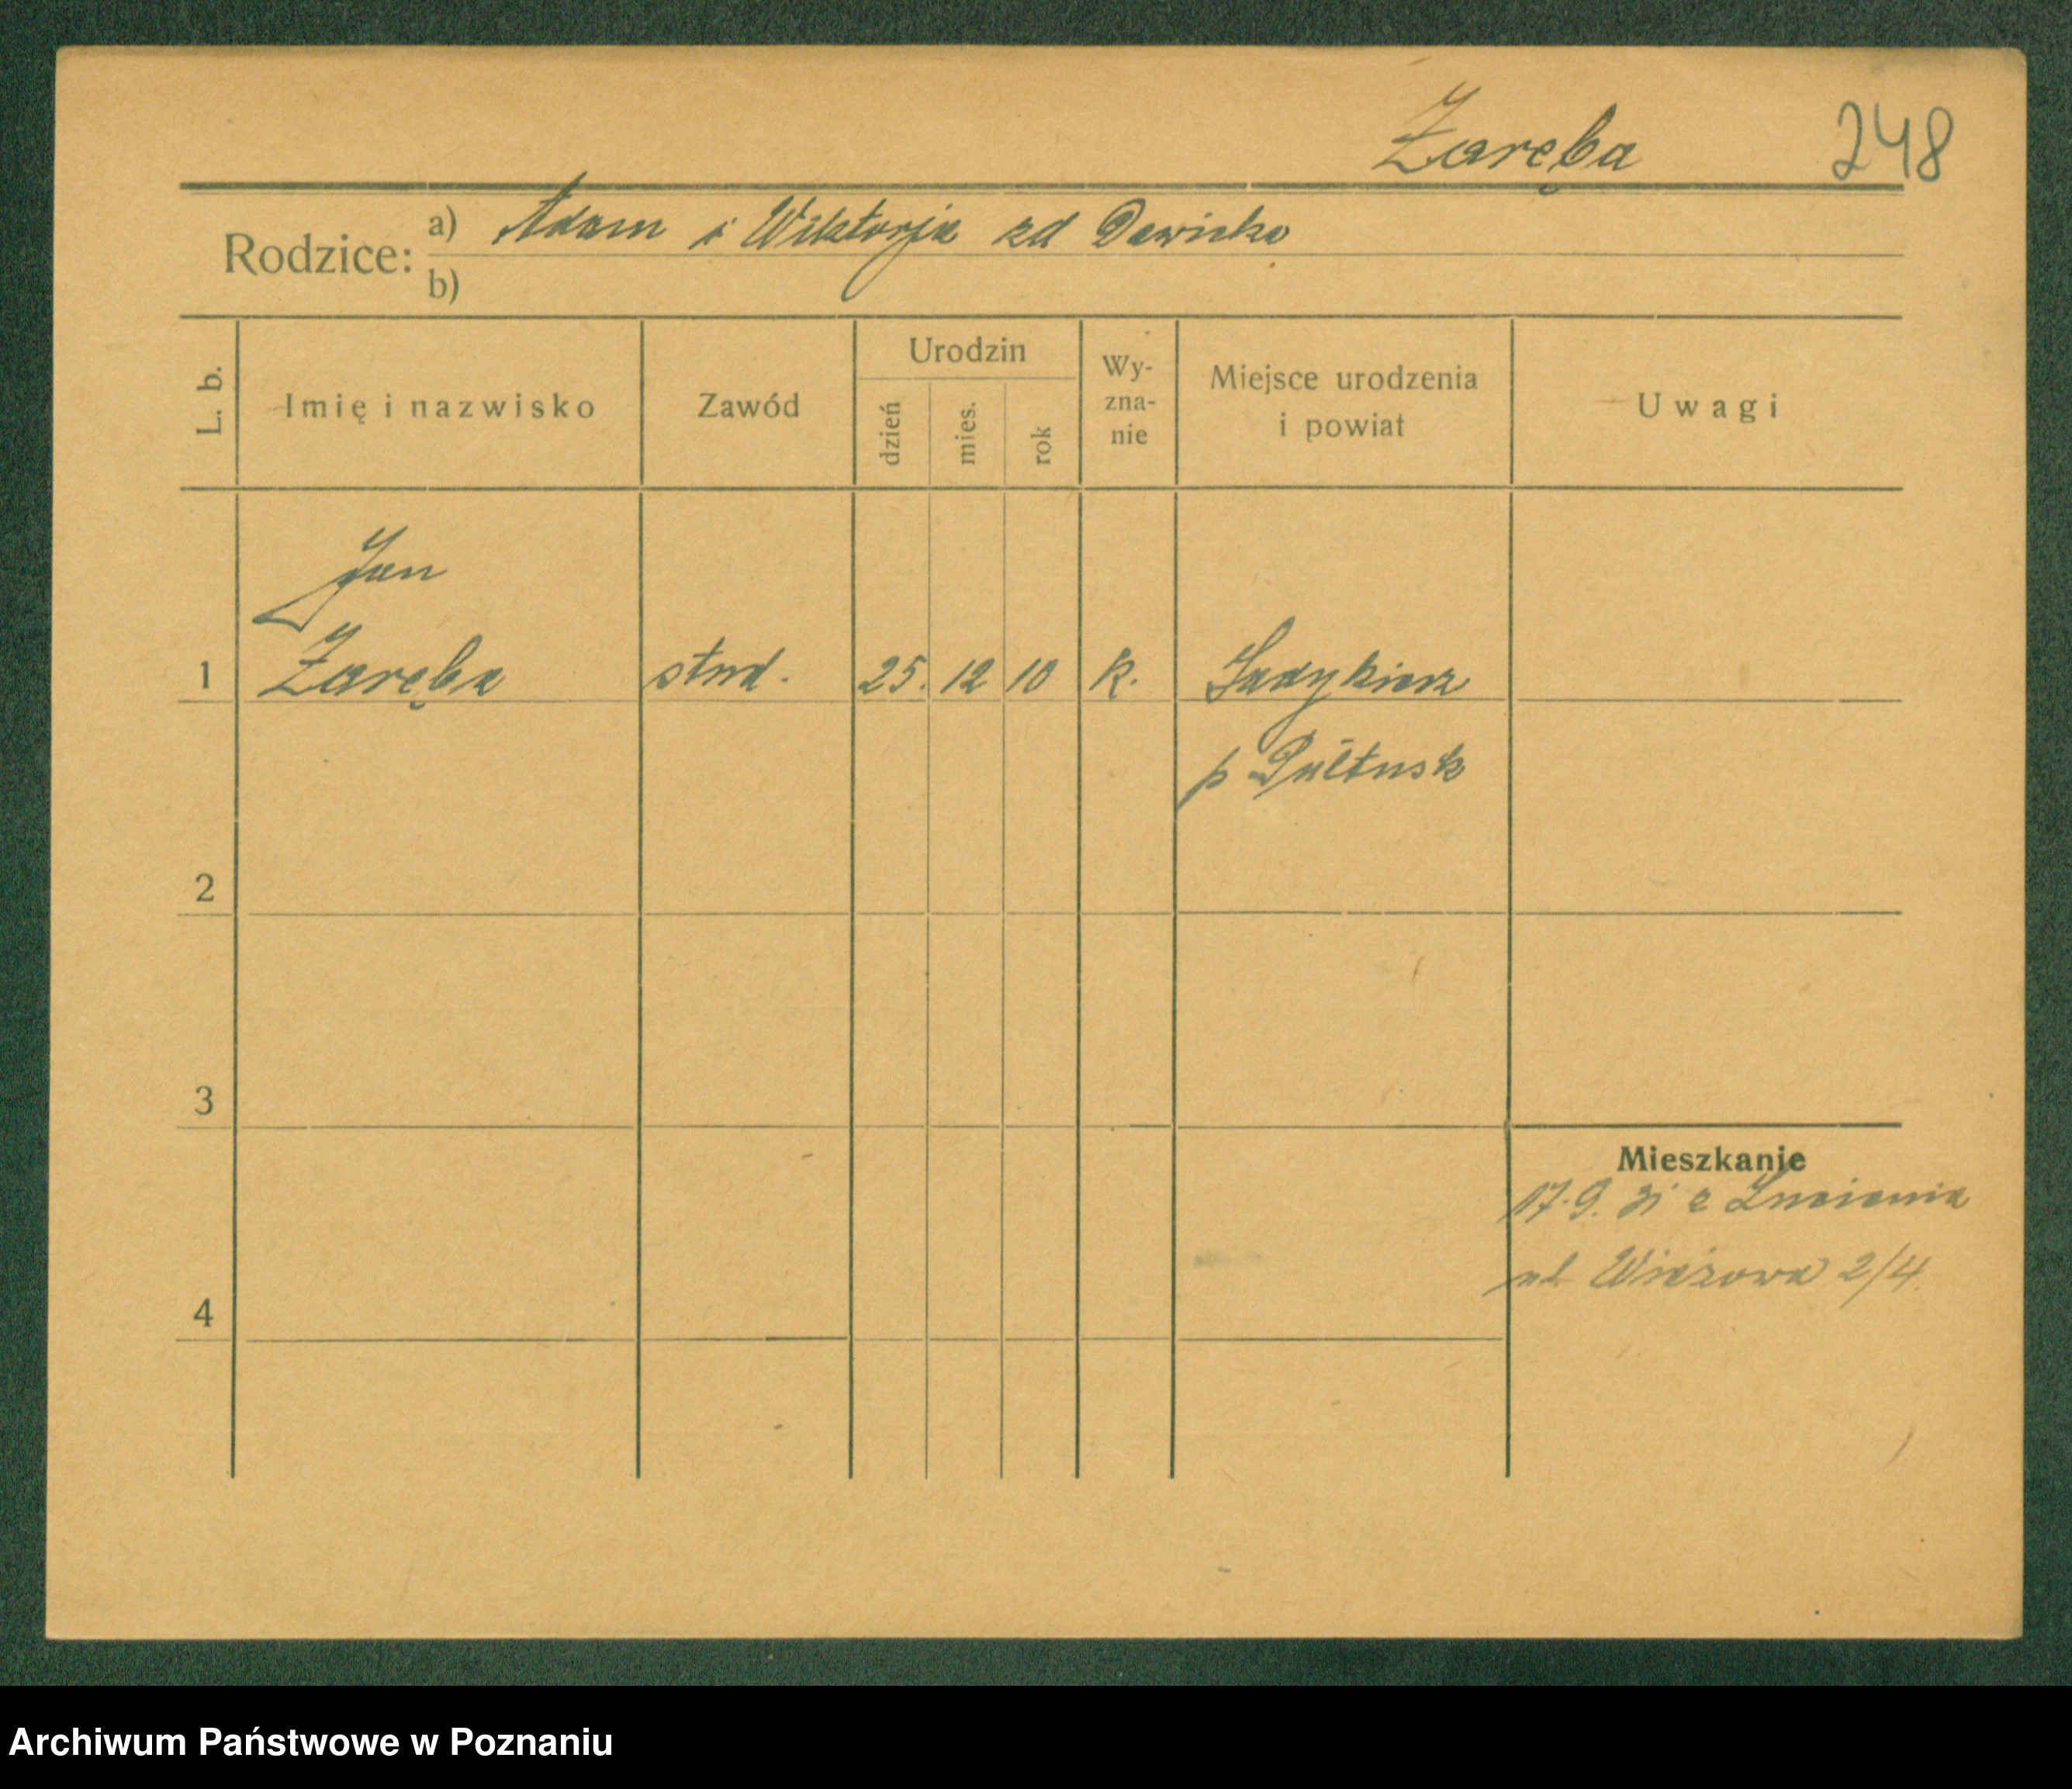 Zaręba 248
Rodzice: a) Adam i Wiktorja zd Dawicka
b)
L. b. Imię i nazwisko Zawód Urodzin dzień mies. rok Wy-zna-nie Miejsce urodzenia i powiat Uwagi
Jan
1 Zaręba stud. 25. 12 10 k. Sadykierz
p Pułtusk
2
3
Mieszkanie
17.9. 31 z
ul Wieżowa 2/4.
4
Archiwum Państwowe w Poznaniu